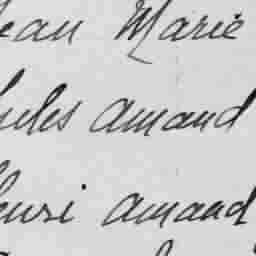 Jean Marie
Jules Amand
Henri Amand